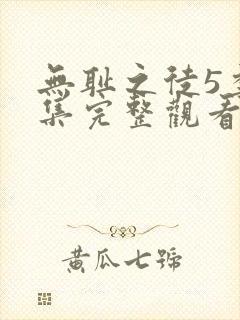 無耻之徒5
集完整觀看
黃瓜七號